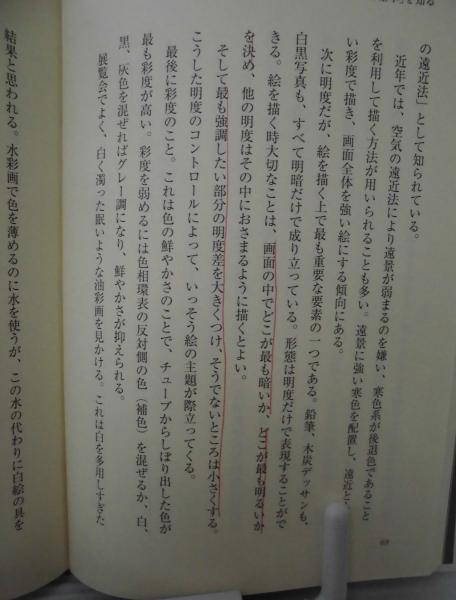 を知る
の遠近法」として知られている。
近年では、空気の遠近法により遠景が弱まるのを嫌い、寒色系が後退色であること
を利用して描く方法が用いられることも多い。遠景に強い寒色を配置し、遠近と
い彩度で描き、画面全体を強い絵にする傾向にある。
次に明度だが、絵を描く上で最も重要な要素の一つである。鉛筆、木炭デッサンも、
白黒写真も、すべて明暗だけで成り立っている。形態は明度だけで表現することがで
きる。絵を描く時大切なことは、画面の中でどこが最も暗いか、どこが最も明るいか
を決め、他の明度はその中におさまるように描くとよい。
そして最も強調したい部分の明度差を大きくつけ、そうでないところは小さくする。
こうした明度のコントロールによって、いっそう絵の主題が際立ってくる。
最後に彩度のこと。これは色の鮮やかさのことで、チューブからしぼり出した色が
最も彩度が高い。彩度を弱めるには色相環表の反対側の色（補色）を混ぜるか、白、
黒、灰色を混ぜればグレー調になり、鮮やかさが抑えられる。
展覧会でよく、白く濁った眠いような油彩画を見かける。これは白を多用しすぎた
69
結果と思われる。水彩画で色を薄めるのに水を使うが、この水の代わりに白絵の具を